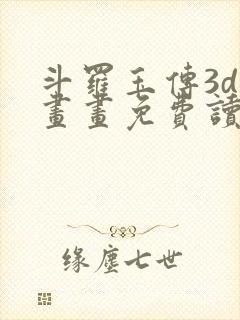 斗羅玉傳3d
畫畫免費讀
缘塵七世